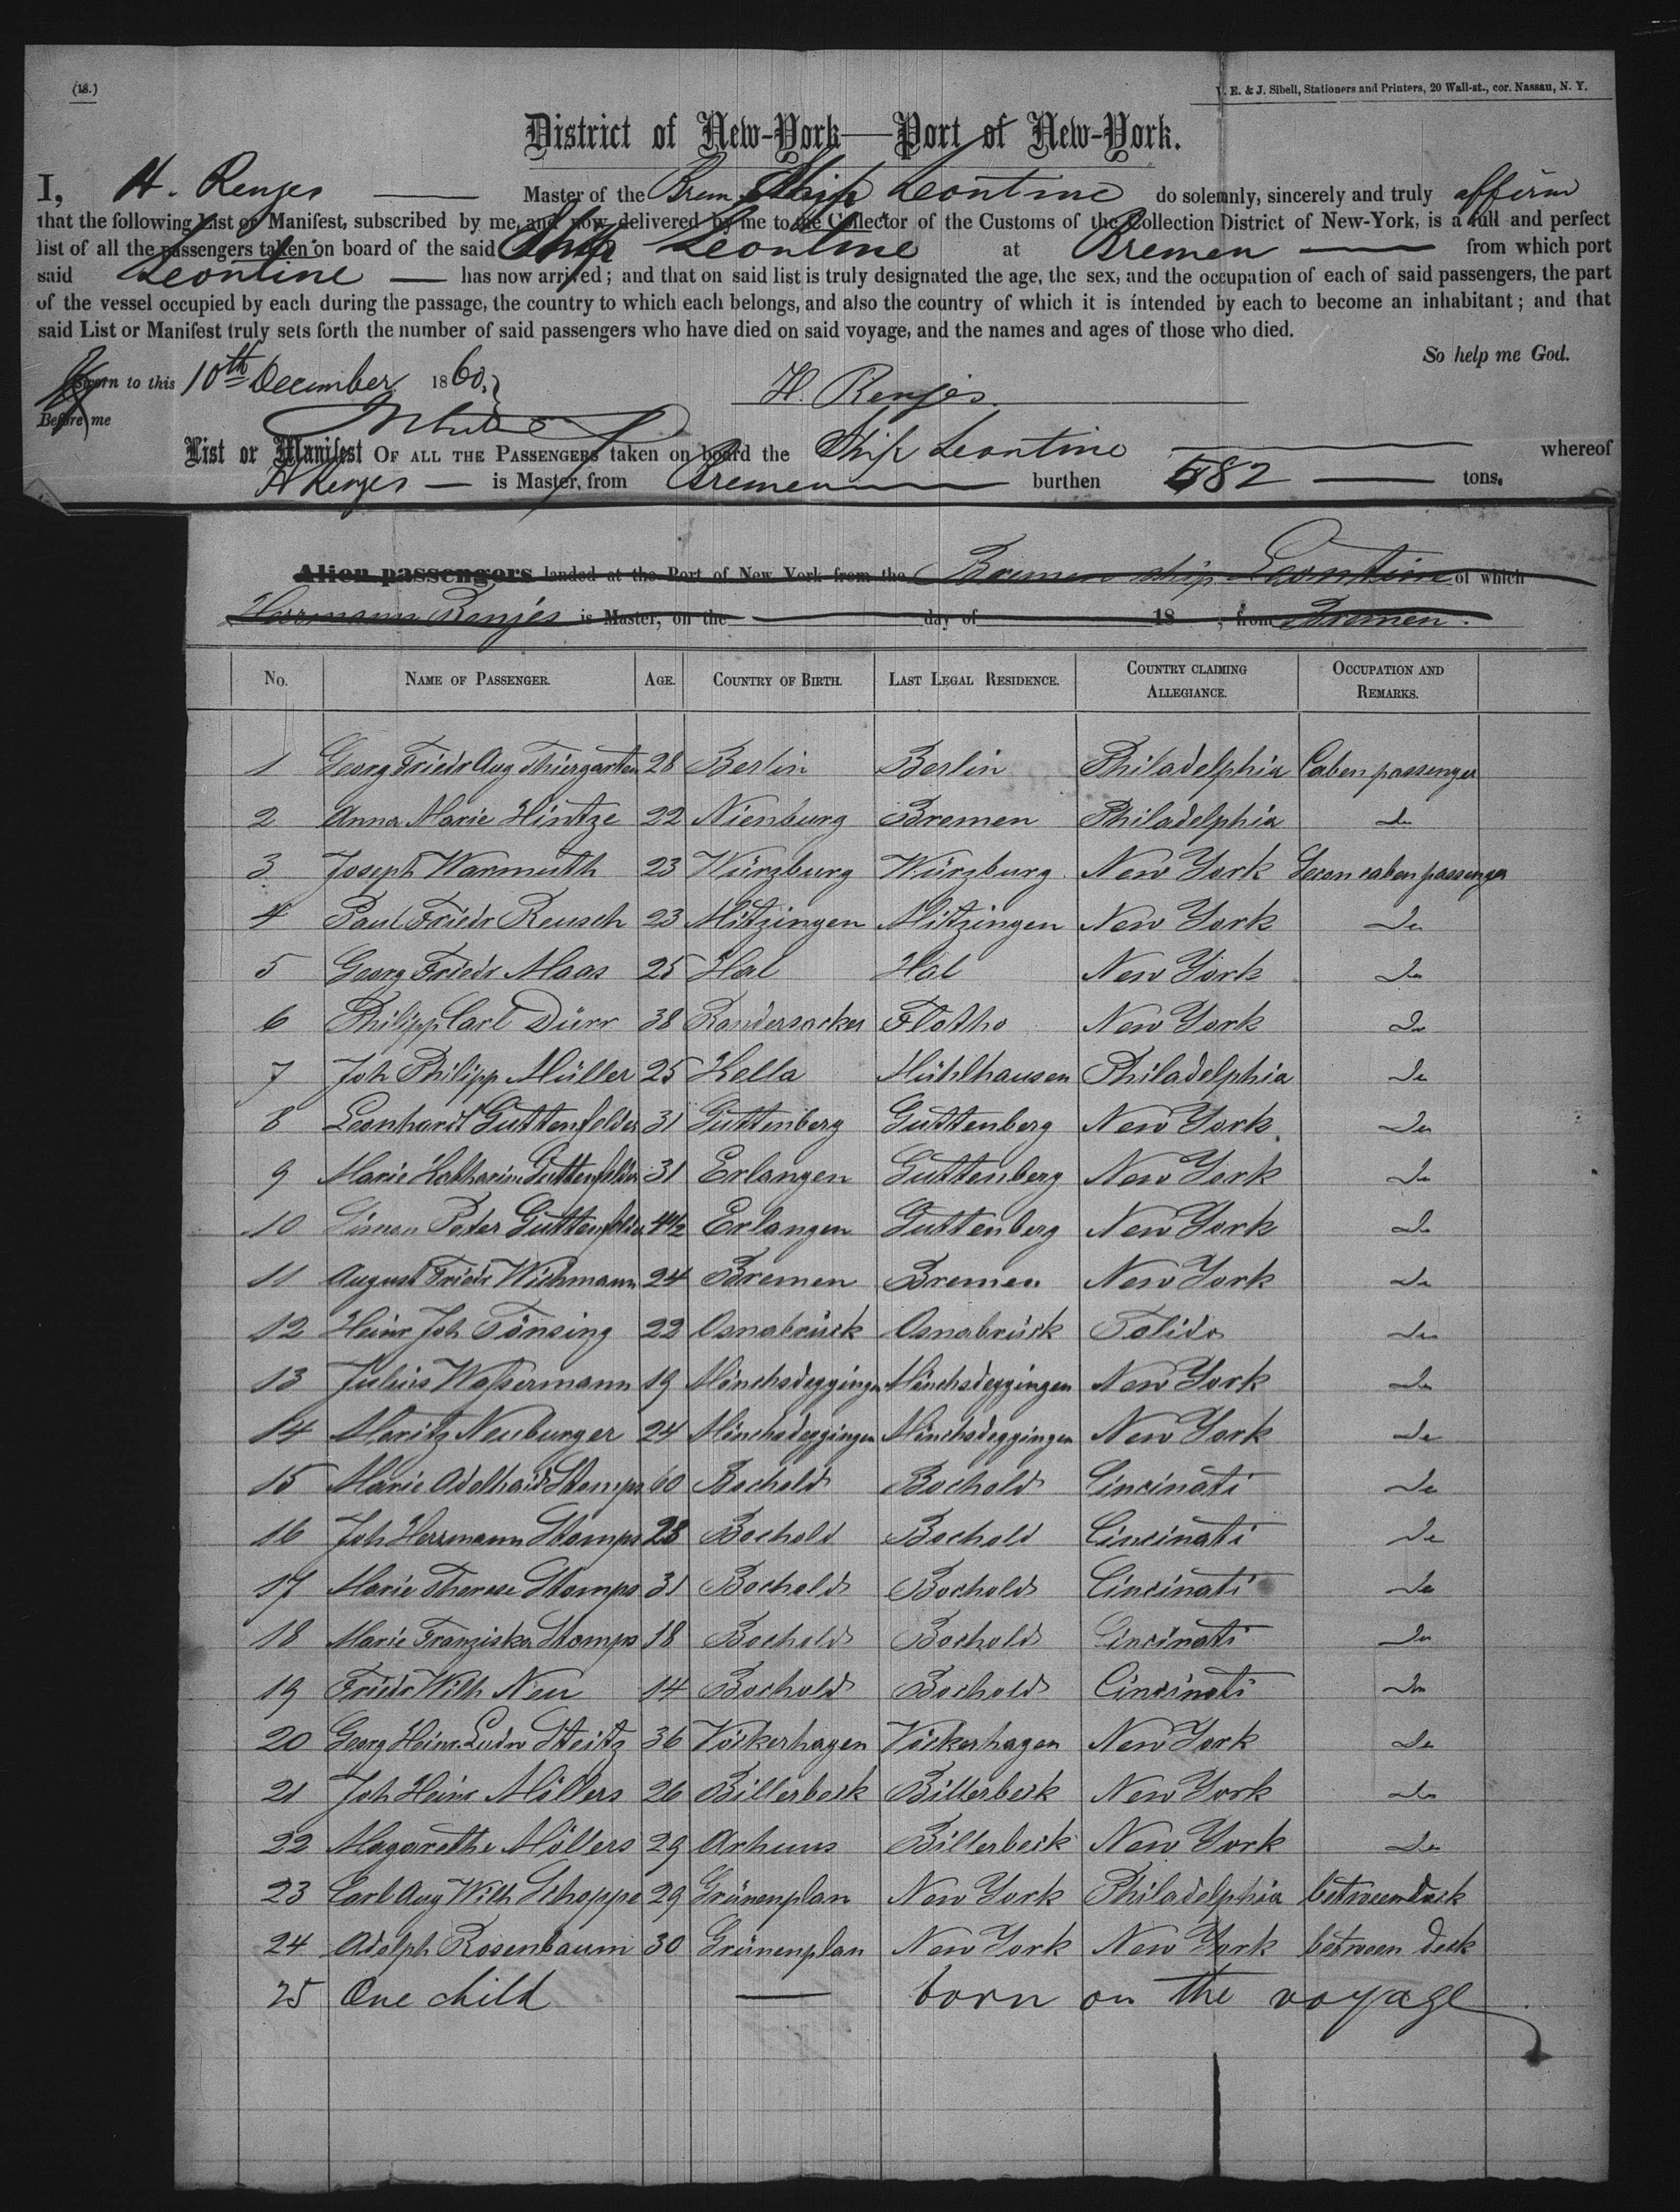 (18.)
V. E. & J. Sibell, Stationers and Printers, 20 Wall-st., cor. Nassau, N. Y.
District of New-York—Port of New-York.
I, H. Renjes Master of the Brem. Ship Leontine do solemnly, sincerely and truly affirm
that the following List or Manifest, subscribed by me, and now delivered by me to the Collector of the Customs of the Collection District of New-York, is a full and perfect
list of all the passengers taken on board of the said Ship Leontine at Bremen from which port
said Leontine has now arrived; and that on said list is truly designated the age, the sex, and the occupation of each of said passengers, the part
of the vessel occupied by each during the passage, the country to which each belongs, and also the country of which it is intended by each to become an inhabitant; and that
said List or Manifest truly sets forth the number of said passengers who have died on said voyage, and the names and ages of those who died.
So help me God.
Sworn to this 10th December 1860.
H. Renjes.
Before me
List or Manifest OF ALL THE PASSENGERS taken on board the Ship Leontine whereof
H Renjes is Master, from Bremen burthen 582 tons.
Alien passengers landed at the Port of New York from the Bremen ship Leontine of which
Herrmann Renjes is Master, on the day of 18 , from Bremen.
No. NAME OF PASSENGER. AGE. COUNTRY OF BIRTH. LAST LEGAL RESIDENCE. COUNTRY CLAIMING ALLEGIANCE. OCCUPATION AND REMARKS.
1 Georg Friedr Aug Thiergarten 28 Berlin Berlin Philadelphia Caben passenger
2 Anna Marie Hintze 22 Nienburg Bremen Philadelphia do
3 Joseph Warmuth 23 Würzburg Würzburg New York Secon caben passenger
4 Paul Friedr Reusch 23 Mitzingen Mitzingen New York do
5 Georg Friedr Maas 25 Hal Hal New York do
6 Philipp Carl Dürr 38 Randersacker Flotho New York do
7 Joh Philipp Müller 25 Kella Mühlhausen Philadelphia do
8 Leonhardt Guttenfelder 31 Guttenberg Guttenberg New York do
9 Marie Katharine Guttenfelder 31 Erlangen Guttenberg New York do
10 Simon Peter Guttenfelder 4 1/2 Erlangen Guttenberg New York do
11 August Friedr Wichmann 24 Bremen Bremen New York do
12 Heinr Joh Tönsing 22 Osnabrück Osnabrück Tolido do
13 Julius Waßermann 19 Mönchsdeggingen Mönchsdeggingen New York do
14 Moritz Neuburger 24 Mönchsdeggingen Mönchsdeggingen New York do
15 Marie Adelhaid Stomps 60 Bochold Bochold Cincinati do
16 Joh Herrmann Stomps 28 Bochold Bochold Cincinati do
17 Marie Therese Stomps 31 Bochold Bochold Cincinati do
18 Marie Franziska Stomps 18 Bochold Bochold Cincinati do
19 Friedr Wilh Neu 14 Bochold Bochold Cincinati do
20 Georg Heinr. Ludw Steitz 36 Vöckerhagen Vöckerhagen New York do
21 Joh Heinr Möllers 26 Billerbeck Billerbeck New York do
22 Magarethe Möllers 29 Arhuus Billerbeck New York do
23 Carl Aug Wilh Schoppe 29 Grünenplan New York Philadelphia betweendeck
24 Adolph Rosenbaum 30 Grünenplan New York New York between deck
25 One child born on the voyage